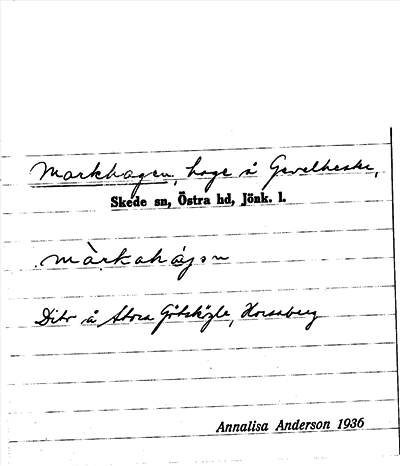 Markhagen, hage å Gevelhester,
Skede sn, Östra hd, Jönk. l.
màrkahágən
Ditr å Stora Göteskögle, Korsaberg
Annalisa Anderson 1936